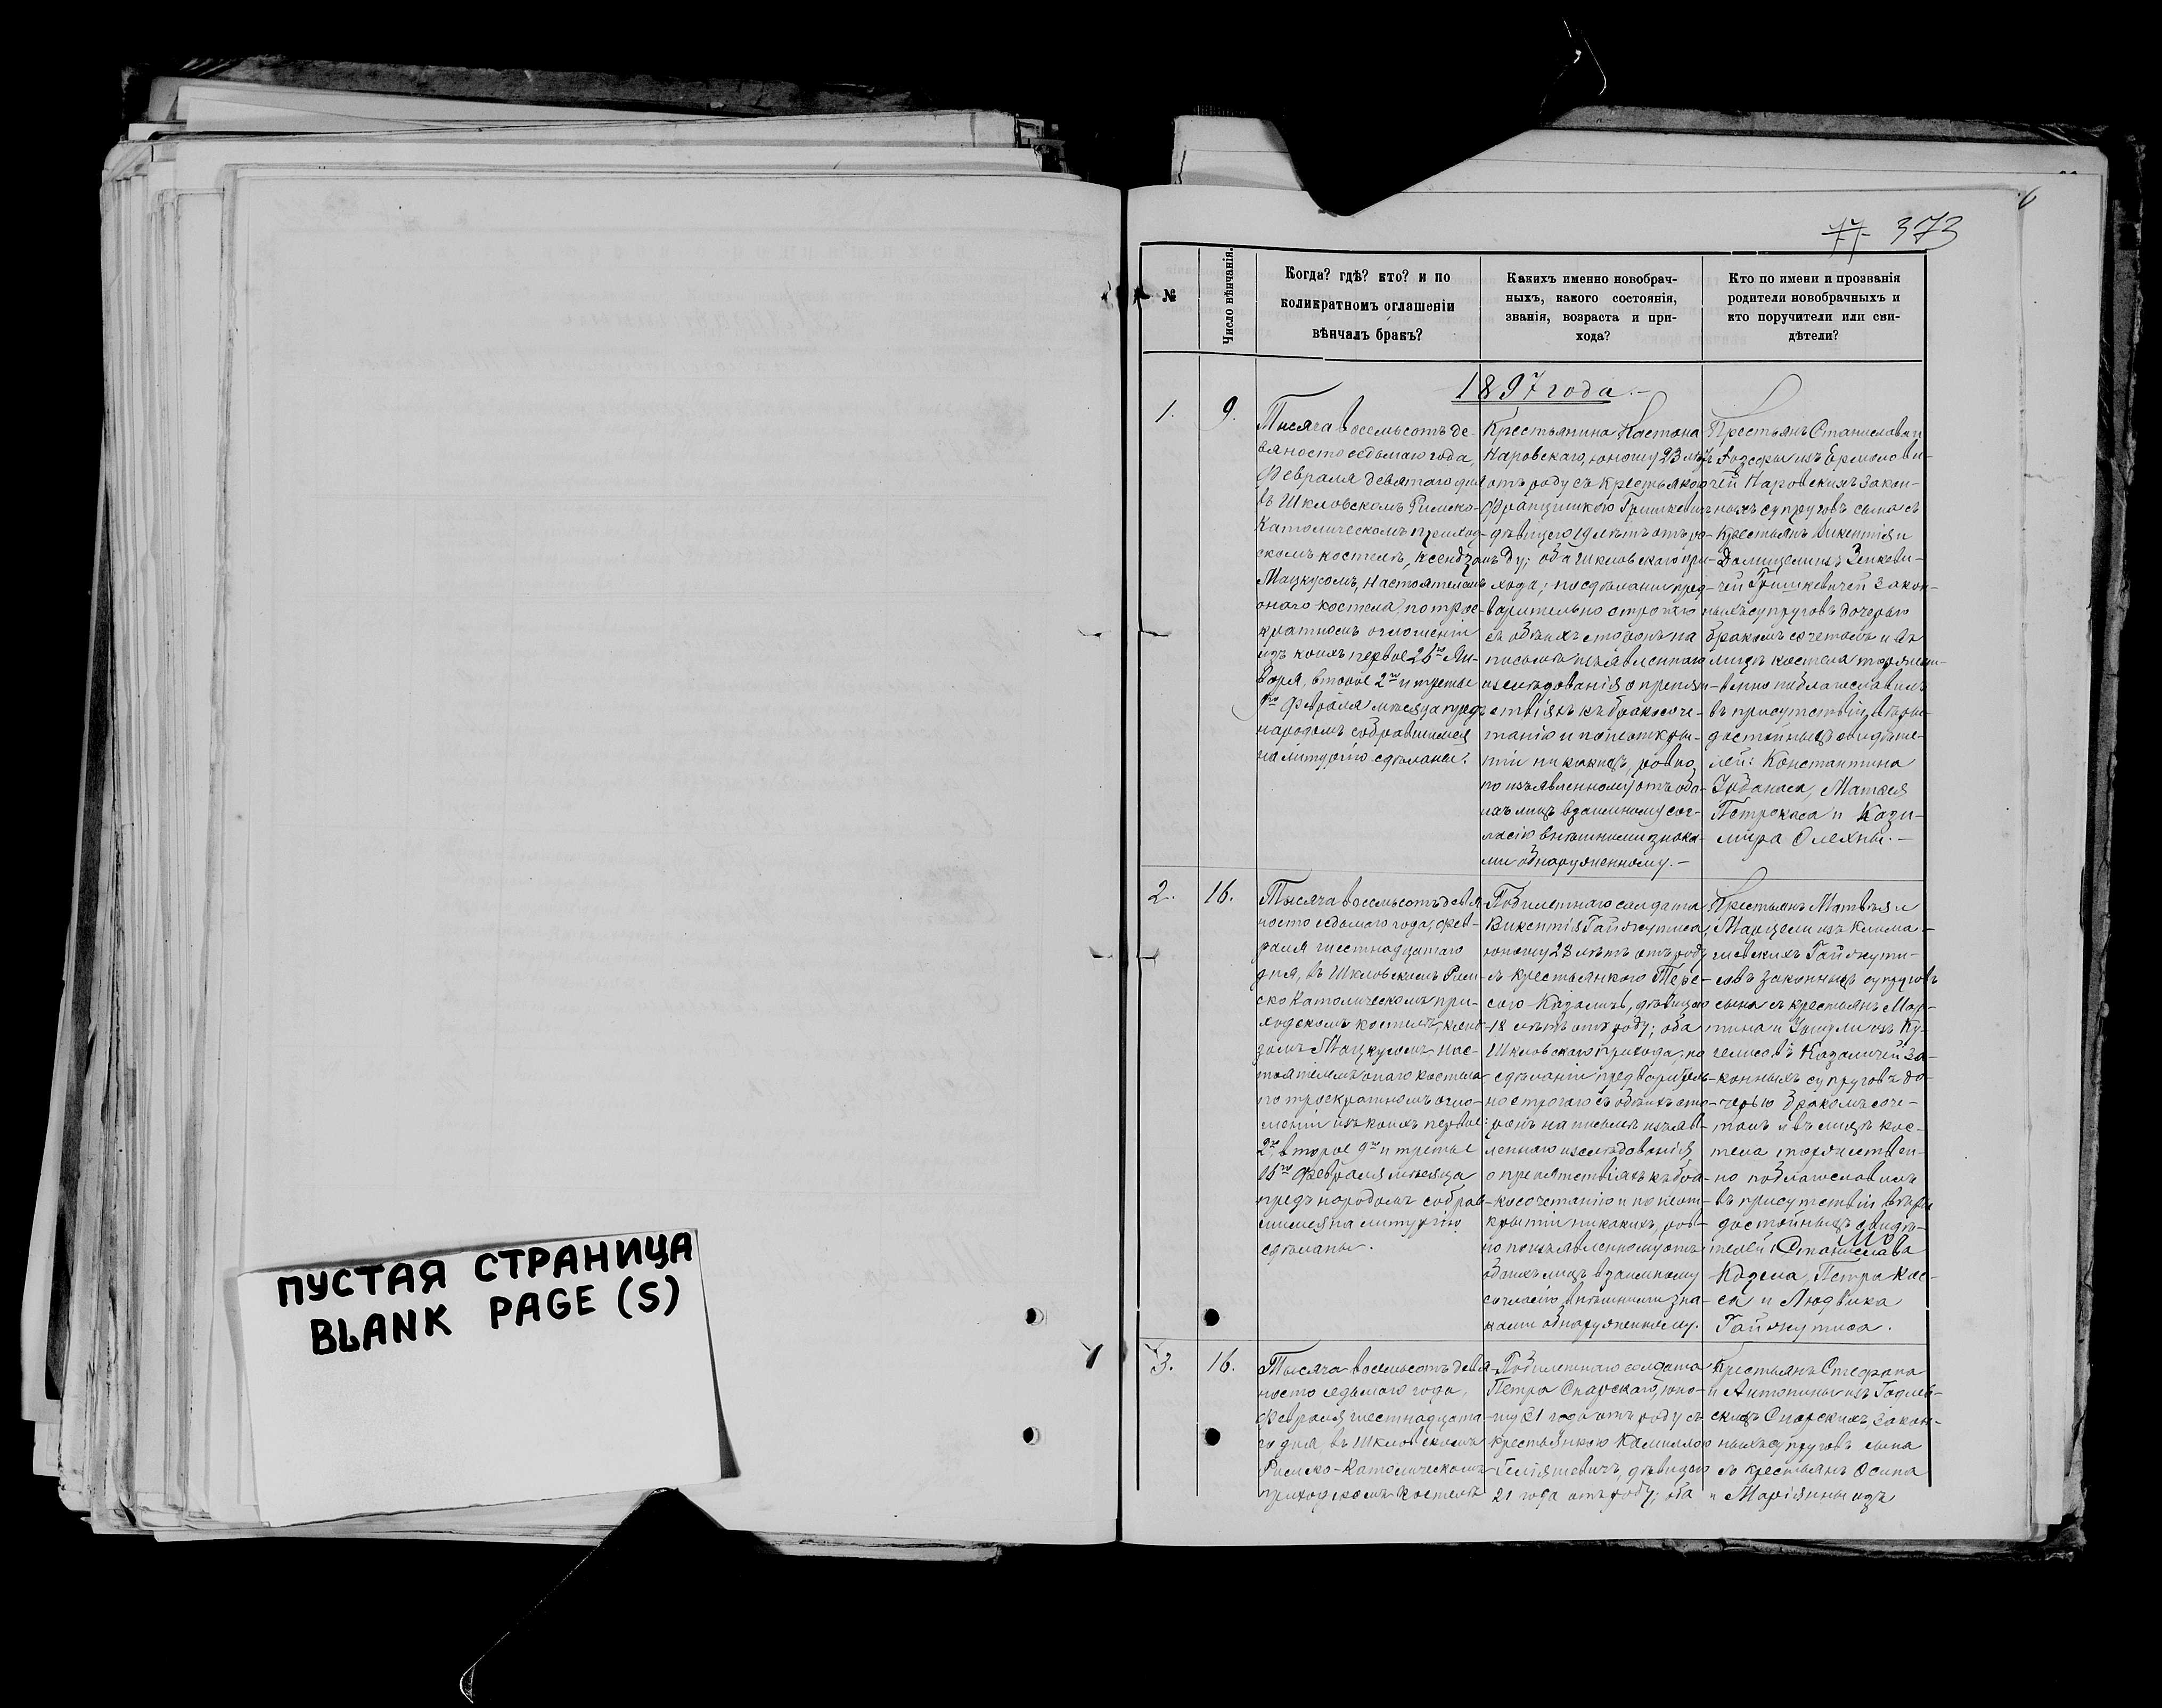 ПУСТАЯ СТРАНИЦА
BLANK PAGE (S)
6
77 373
№
Число вѣнчанія.
Когда? гдѣ? кто? и по
коликратномъ оглашеніи
вѣнчалъ бракъ?
Какихъ именно новобрач-
ныхъ, какого состоянія,
званія, возраста и при-
хода?
Кто по имени и прозванія
родители новобрачныхъ и
кто поручители или сви-
дѣтели?
1897 года.-
1.
9.
Тысяча восемьсотъ де-
вяносто седьмаго года,
Февраля девятаго дня
въ Шкловскомъ Римско-
Католическомъ приход-
скомъ костелѣ, ксендзомъ
Мацкусомъ, Настоятелемъ
онаго костела по трое-
кратномъ оглашеніи
изъ коихъ первое 26го Ян-
воря, второе 2го и третье
9го Февраля мѣсяца предъ
народомъ собравшимся
на литургію сдѣланы.
Крестьянина Каетана
Наровскаго, юношу 23 лѣтъ
отъ роду съ крестьянкою
Францишкою Гришкевичъ
дѣвицею 19 лѣтъ отъ ро-
ду; оба Шкловскаго при-
хода; по сдѣланіи пред-
варительно строгаго
съ обѣихъ сторонъ на
письмѣ изъявленнаго
изслѣдованія о препят-
ствіяхъ къ бракосоче-
танію и по неоткры-
тіи никакихъ, равно
по изъявленному отъ обо-
ихъ лицъ взаимному сог-
ласію внѣшними знака-
ми обнаруженному.-
Крестьянъ Станислава и
Іозефы изъ Ермолови-
чей Наровскихъ закон-
ныхъ супруговъ сына съ
Крестьянъ Викентія и
Домицели изъ Зенкеви-
чей Гришкевичей закон-
ныхъ супруговъ дочерью
бракомъ сочеталъ и въ
лицѣ костела торжест-
венно поблагословилъ
въ присутствіи вѣры-
достойныхъ свидѣте-
лей: Константина
Урбанаса, Матвея
Петрокаса и Кази-
мира Олехны.-
2.
16.
Тысяча восемьсотъ девя-
носто седьмаго года, фев-
раля шестнадцатаго
дня, въ Шкловскомъ Рим-
ско Католическомъ при-
ходскомъ костелѣ, ксен-
дзомъ Мацкусомъ Нас-
тоятелемъ онаго костела
по троекратномъ огла-
шеніи изъ коихъ первое:
2го, второе 9го и третье
16го Февраля мѣсяца
предъ народомъ собрав-
шимся на литургію
сдѣланы.
Побилетнаго солдата
Викентія Гайжутиса,
юношу 28 лѣтъ отъ роду
съ крестьянкою Тере-
сою Кадзаличъ, дѣвицею
18 лѣтъ отъ роду; оба
Шкловскаго прихода; по
сдѣланіи предваритель-
но строгаго съ обѣихъ сто-
ронъ на письмѣ изъяв-
леннаго изслѣдованія
о препятствіяхъ къ бра-
косочетанію и по неот-
крытіи никакихъ, рав-
но по изъявленному отъ
обоихъ лицъ взаимному
согласію внѣшними зна-
ками обнаруженному.
Крестьянъ Матвѣя и
Марцели изъ
Гайжути-
совъ законныхъ супруговъ
сына съ крестьянъ Мар-
тина и Уршули изъ
за-
конныхъ супруговъ до-
черью бракомъ соче-
талъ и въ лицѣ кос-
тела торжествен-
но поблагословилъ
въ присутствіи вѣры
достойныхъ свидѣ-
телей: Станислава
Петра Кас-
са и Людвика
Гайжутиса.
3.
16.
Тысяча восемьсотъ девя-
носто седьмаго года,
Февраля шестнадцата-
го дня, въ Шкловскомъ
Римско-Католическомъ
приходскомъ костелѣ
Побилетнаго солдата
Петра Снарскаго, юно-
шу 31 года отъ роду съ
крестьянкою Камиллою
дѣвицею
21 года отъ роду; оба
Крестьянъ Стефана
и Антонины изъ
Снарскихъ закон-
ныхъ супруговъ сына
съ крестьянъ Осипа
и Маріянны изъ